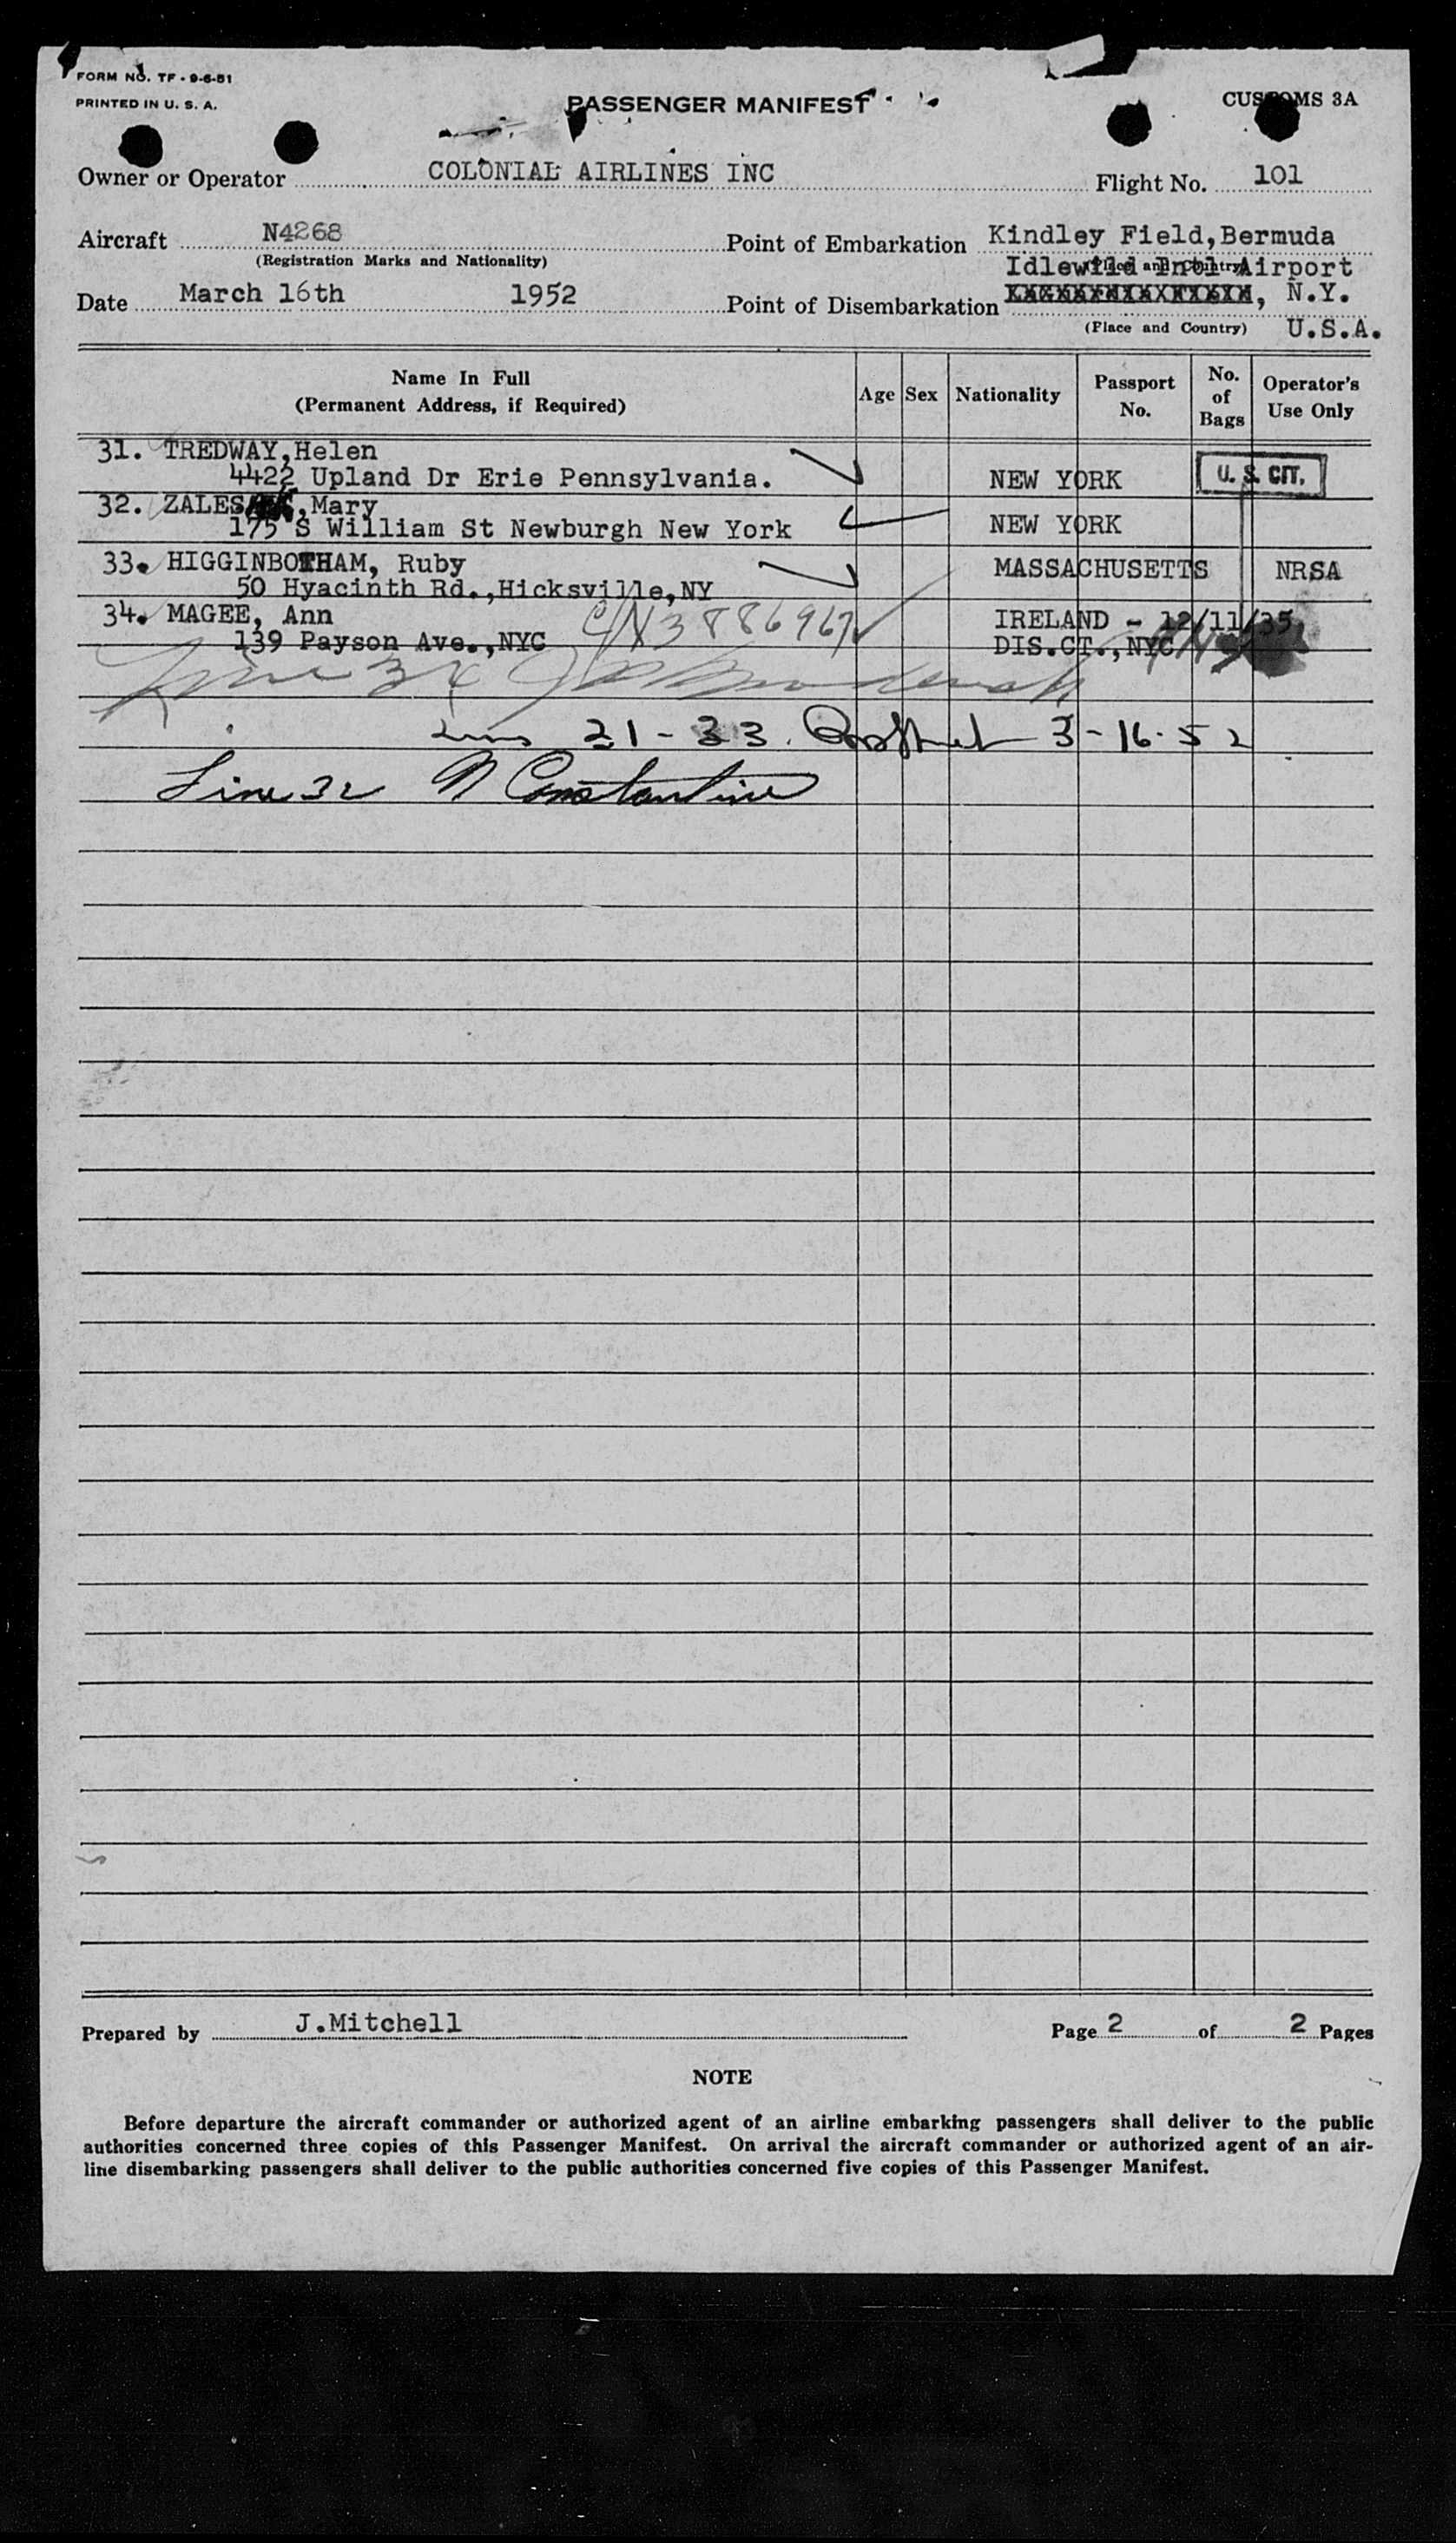 FORM NO. TF - 9-6-51
PRINTED IN U. S. A.
PASSENGER MANIFEST
CUSTOMS 3A
Owner or Operator COLONIAL AIRLINES INC Flight No. 101
Aircraft N4268 Point of Embarkation Kindley Field,Bermuda
(Registration Marks and Nationality) (Place and Country)
Idlewild Intl Airport
Date March 16th 1952 Point of Disembarkation , N.Y.
(Place and Country) U.S.A.
Name In Full (Permanent Address, if Required) Age Sex Nationality Passport No. No. of Bags Operator's Use Only
31. TREDWAY,Helen
4422 Upland Dr Erie Pennsylvania. NEW YORK U. S. CIT.
32. ZALES ,Mary
175 S William St Newburgh New York NEW YORK
33. HIGGINBOTHAM, Ruby MASSACHUSETTS NRSA
50 Hyacinth Rd.,Hicksville,NY
34. MAGEE, Ann C/N 3886967 IRELAND - 12/11/35
139 Payson Ave.,NYC DIS.CT.,NYC
Line 34
21 - 33. 3-16-52
Line 32 N Constantine
Prepared by J.Mitchell Page 2 of 2 Pages
NOTE
Before departure the aircraft commander or authorized agent of an airline embarking passengers shall deliver to the public
authorities concerned three copies of this Passenger Manifest. On arrival the aircraft commander or authorized agent of an air-
line disembarking passengers shall deliver to the public authorities concerned five copies of this Passenger Manifest.